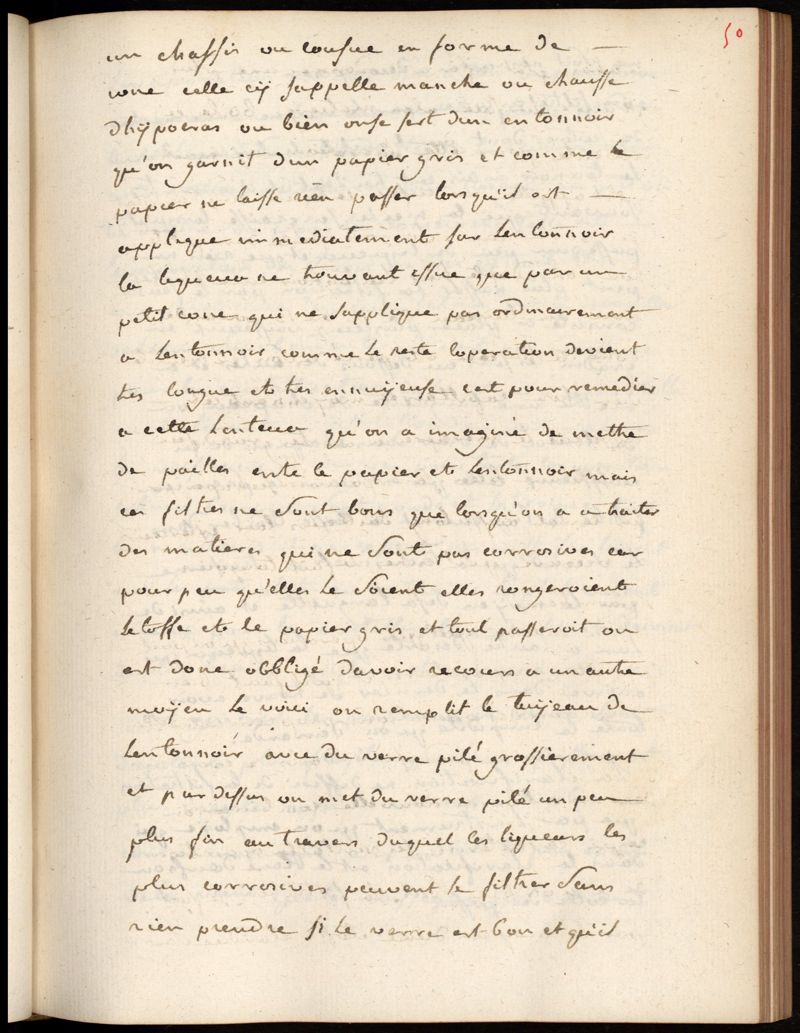 50
un chassis ou cousue en forme de —
cone celle cÿ sappelle manche ou chausse
dhÿpocras ou bien onse sert dun entonnoir
qu'on garnit dun papier gris et comme le
papier ne laisse rien passer lorsquil est —
applique immediatement sur lentonnoir
la liqueur ne trouvant issue que par un
petit cone qui ne sapplique pas ordinairement
a lentonnoir comme le reste loperation devient
tres longue et tres ennuÿeuse cest pour remedier
a cette lenteur qu'on a imaginé de mettre
de pailles entre le papier et lentonnoir mais
ces filtres ne sont bons que lorsqu'on a a traiter
des matieres qui ne sont pas corrosives car
pour peu qu'elles le soient elles rongeroient
letoffe et le papier gris et tout passeroit on
est donc obbligé davoir recours a un autre
moÿen le voici on remplit le tuÿeau de
lentonnoir avec du verre pilé grossierement
et par dessus on met du verre pilé un peu
plus fin au travers duquel les liqueurs les
plus corrosives peuvent se filtrer sans
rien prendre si le verre est bon et quil